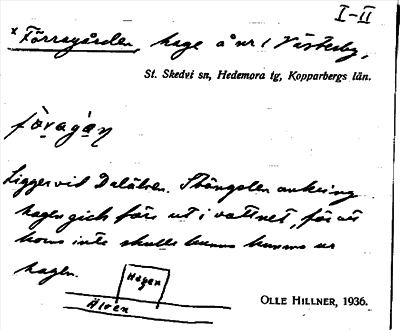 I-II
* Förragården, hage å nr 1 Västerby,
St. Skedvi sn, Hedemora tg, Kopparbergs län.
Ligger vid Dalälven. Stängslen omkring
hagen gick förr ut i vattnet, för att
korna inte skulle kunna komma ur
hagen.
Hagen
Älven
OLLE HILLNER, 1936.